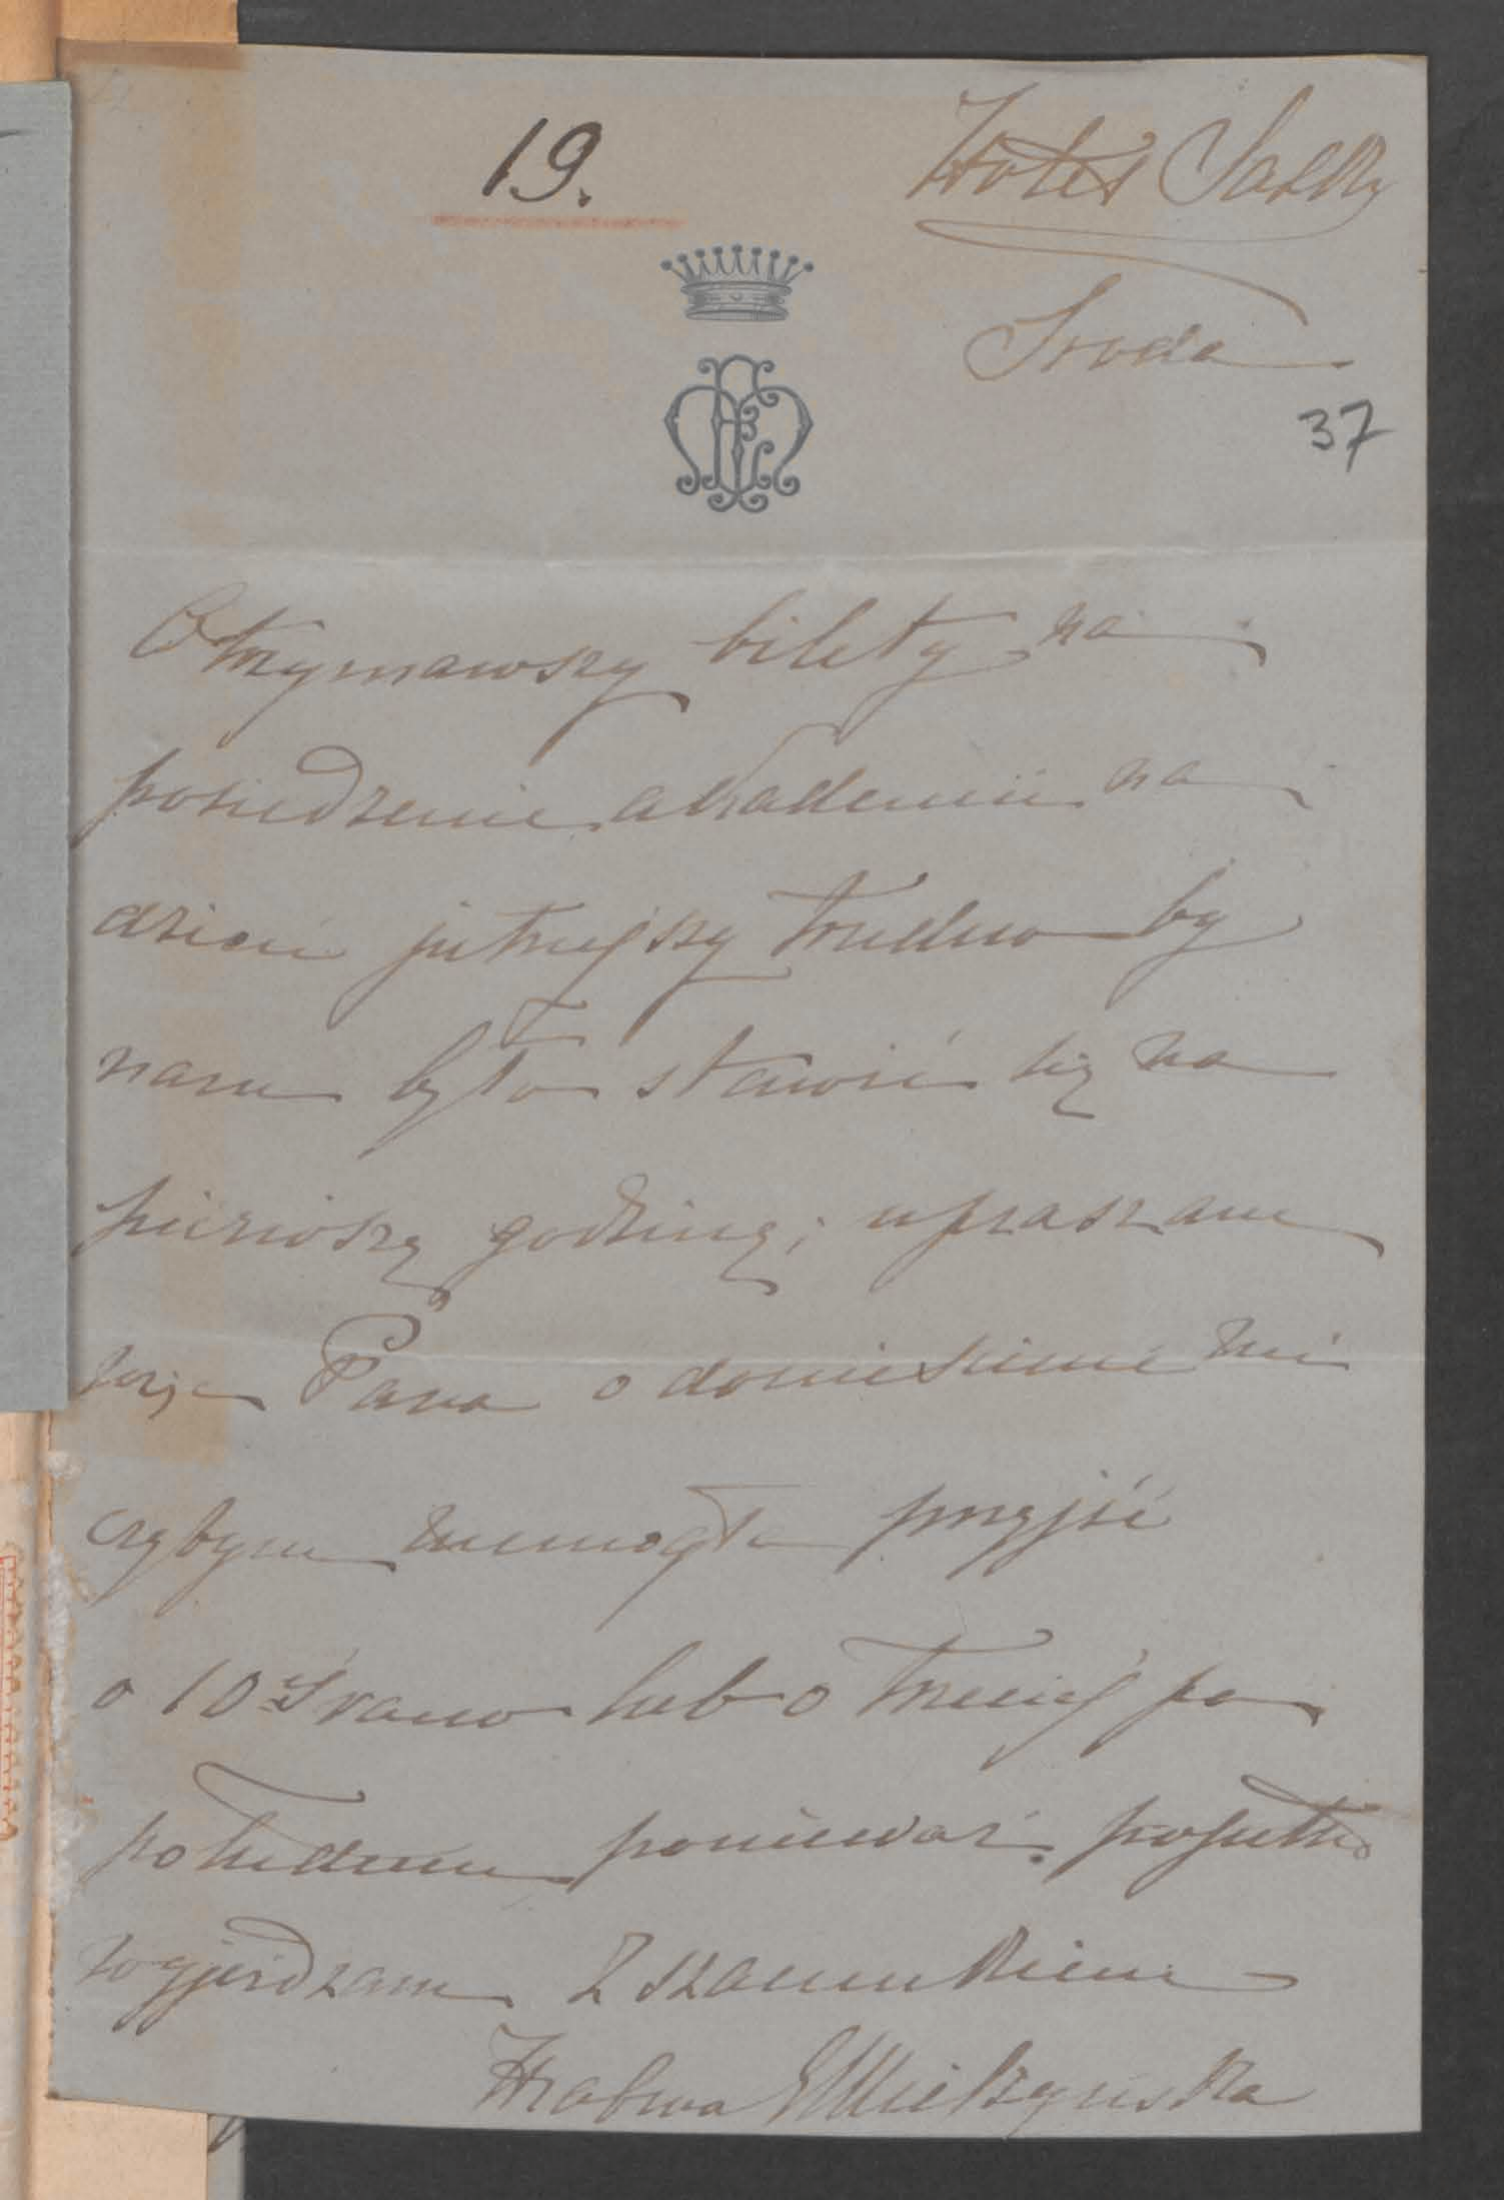 19.
Hotel Saski
Sroda
37
Otrzymawszy bilety na
posiedzenie akademii na
dzień jutrzejszy trudno by
nam było stawić się na
pierwszą godzinę; upraszam
więc Pana o doniesienie mi
czybym niemogła przyjść
o 10ej rano lub o trzeciej po
południu ponieważ pojutrze
wyjeżdzam Z szacunkiem
Hrabina EMielżyńska